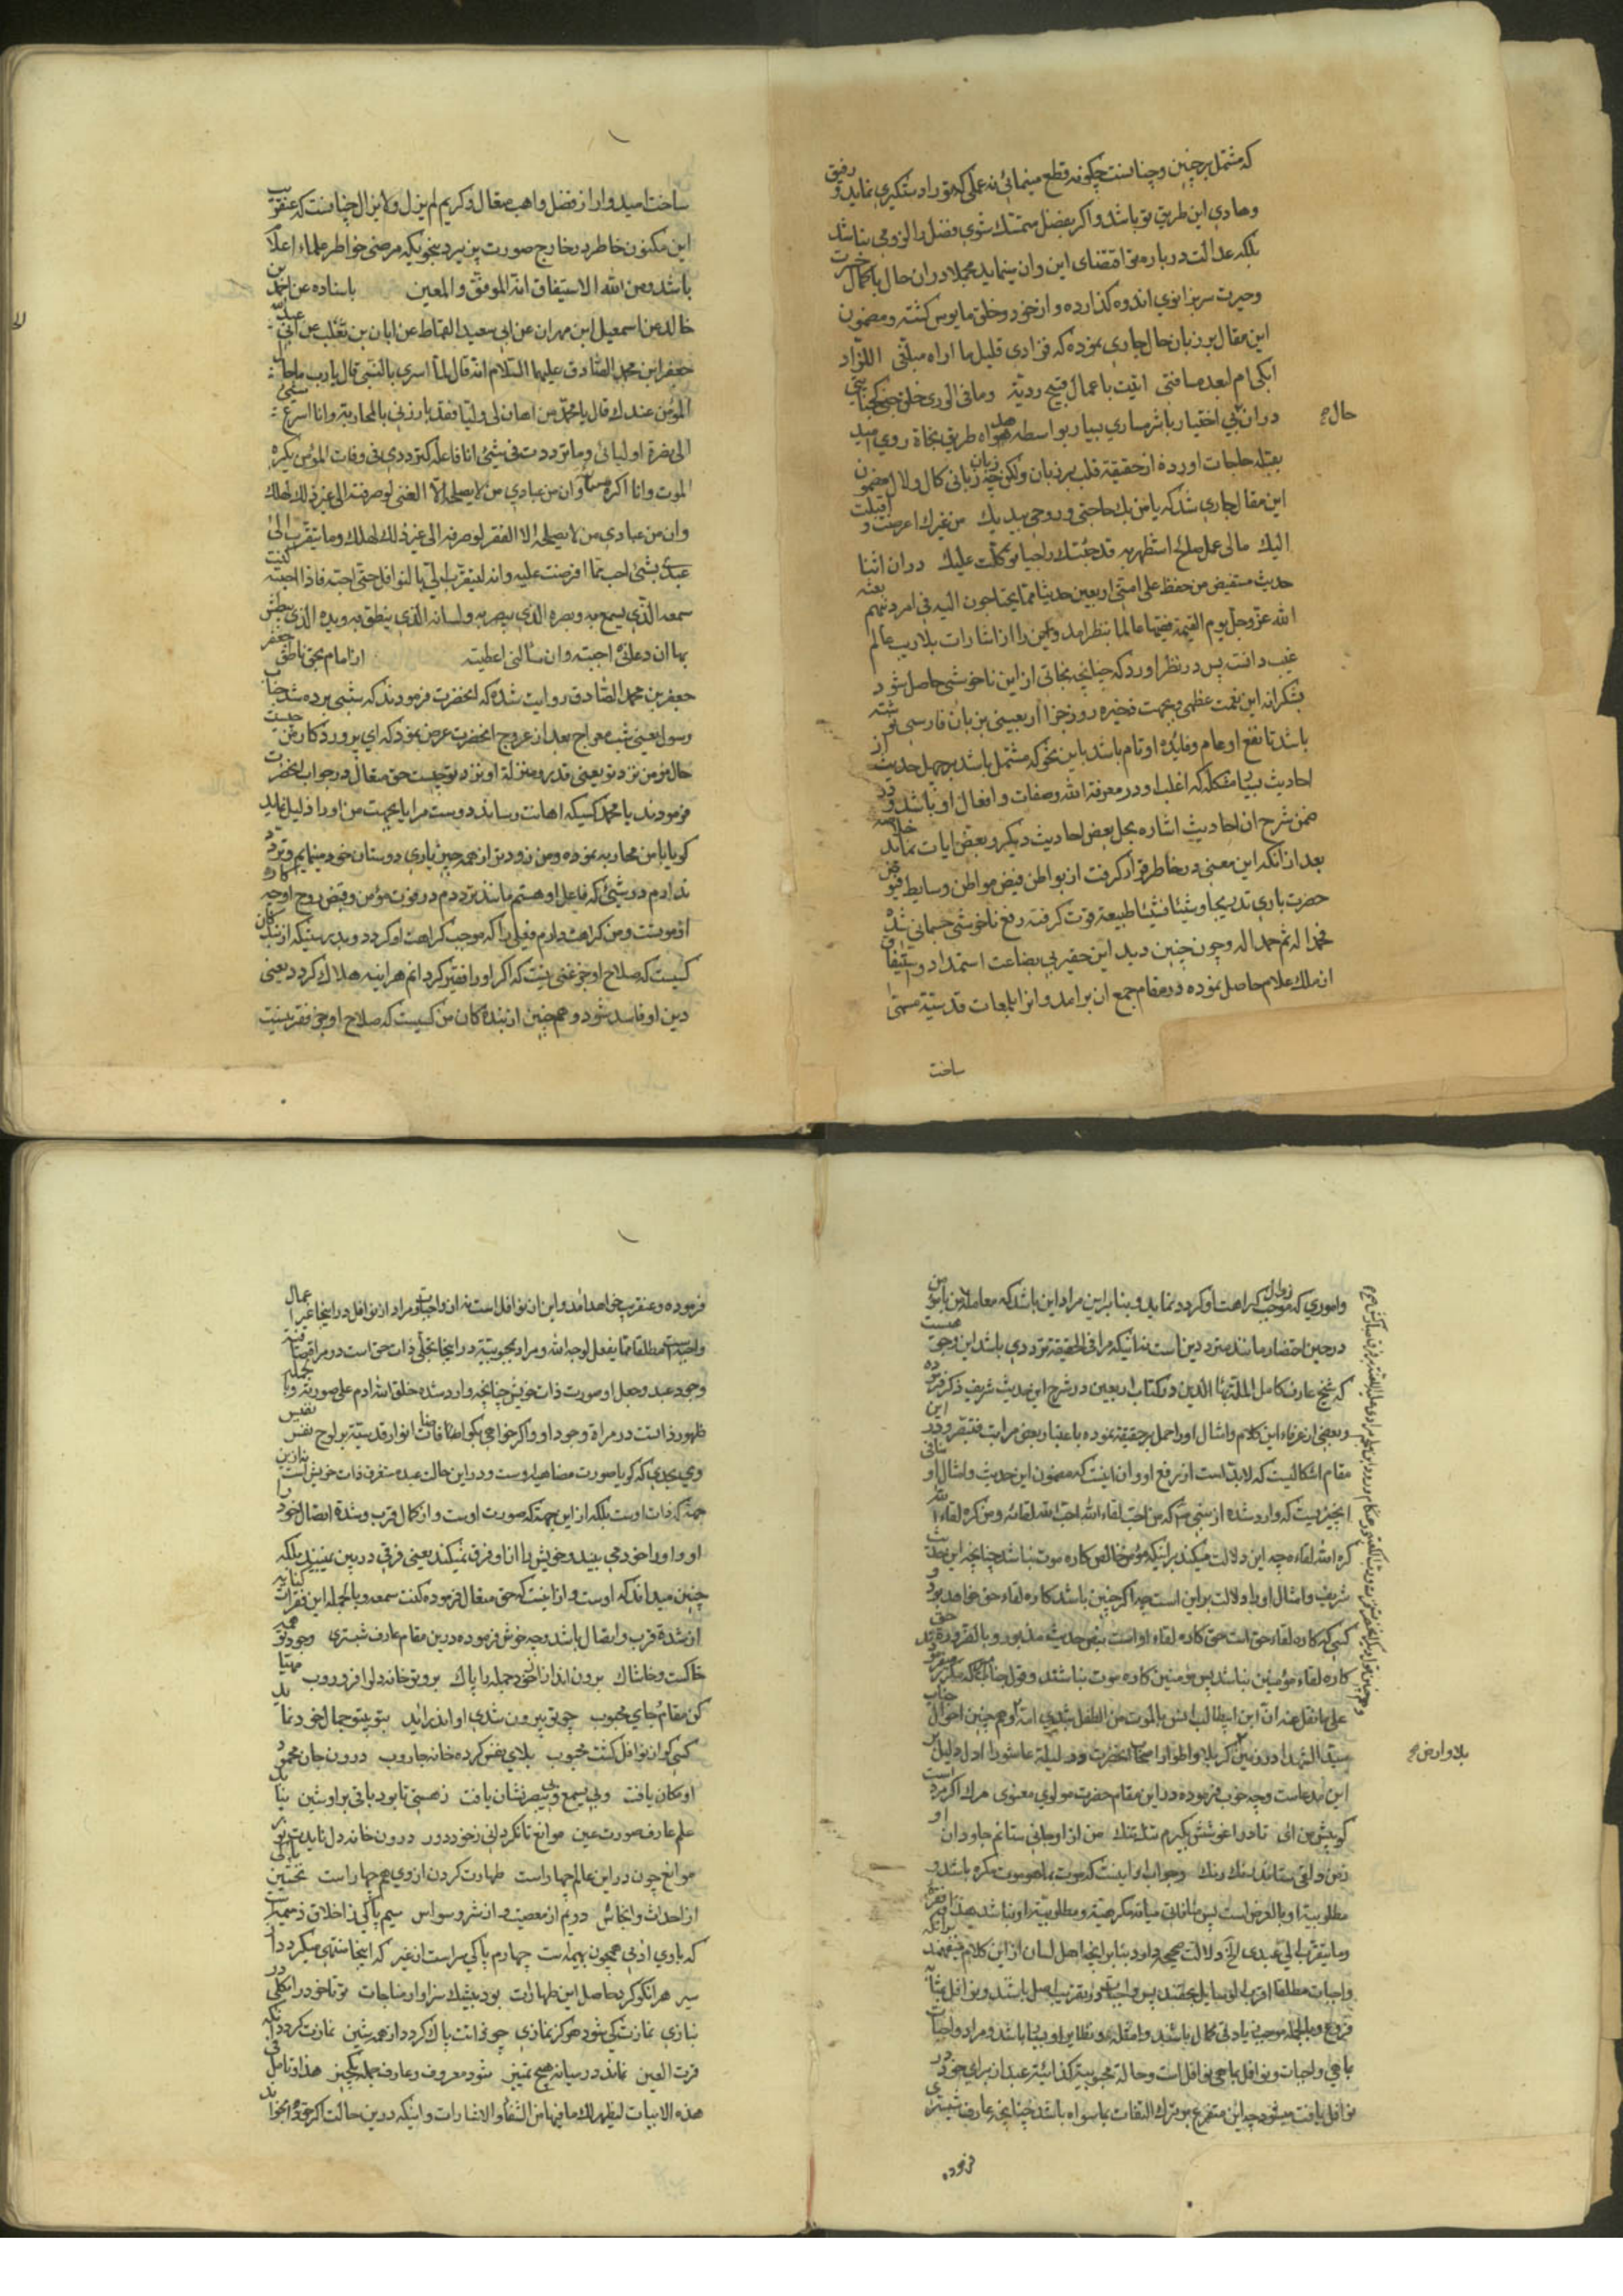 که مشتمل بر چنین و چنانست چگونه قطع مینمائی نه عملی که تو را دستکیری نماید و رفیق
و هادی این طریق تو باشد و اکر بفضل متمسّك شوی فضل را لزومی نباشد
بلکه عدالت درباره تو اقتضای این و آن مینماید مجملا در ان حال با کمال حسرت
و حیرت سر بزانوی اندوه کذارده و از خود و خلق مایوس کشته و مضمون
این مقال بر زبان حال جاری نموده که فزادی قلیل ما اراه مبلّغی اللزّاد
ابکی ام لبعد مسافتی اتیت باعمال قبیح ردیّة وما فی الوری خلق جنی کجنایتی
در ان بی اختیار با شرمساری بسیار بواسطه راه طریق نجاة روی امید
بقبله حاجات اورده از حقیقة قلب بر زبان ولکن چه زبان زبانی کال و لال مضمون
این مقال جاری شد که یا من بك حاجتی وروحی بیدیك من غیرك اعرضت و اقبلت
الیك مالی عمل صالح استظهر به قد جئتك راجیا توکّلت علیك در ان اثنا
حدیث مستفیض من حفظ علی امتی اربعین حدیثا ممّا یحتاجون الیه فی امر دینهم بعثه
الله عزّوجلّ یوم القیمة فقیها عالما بنظر امد و این را از اشارات بلاریب عالم
غیب دانست پس در نظر اورد که چنانچه نجاتی از این ناخوشی حاصل شود
بشکرانه این نعمت عظمی و بجهت ذخیره روز جزا اربعینی بزبان فارسی نوشته
باشد تا نفع او عام و فایده او تام باشد باین نحو که مشتمل باشد بر چهل حدیث از
احادیث مشکله که اغلب او در معرفة الله وصفات و افعال او باشد و در
ضمن شرح ان احادیث اشاره بحل بعض احادیث دیکر و بعض ایات نماید خلاصه
بعد از انکه این معنی در خاطر قرار کرفت از بواطن فیض مواطن وسایط فیوض
حضرت باری تدریجا و شیئا فشیئا طبیعة قوت کرفته رفع ناخوشی جسمانی شده
فحمدا له ثم حمدا له و چون چنین دید این حقیر بی بضاعت استمداد و استیفاق
از ملك علام حاصل نموده در مقام جمع ان برامد و انرا بلمعات قدسیّة مسمّی
ساخت
حال
ساخت امیدوار از فضل واهب متعال و کریم لم یزل ولایزال چنانست که عنقریب
این مکنون خاطر در خارج صورت پذیرد بنحویکه مرضی خواطر علماء اعلام
باشد ومن الله الاستیفاق انه الموفّق والمعین باسناده عن احمد بن
خالد عن اسمعیل ابن مهران عن ابی سعید القماط عن ابان بن تغلب عن ابی عبدالله
جعفر ابن محمد الصّادق علیهما السّلام انه قال لمّا اسری بالنّبی قال یارب ما حال
المؤمن عندك قال یا محمّد من اهان لی ولیّا فقد بارزنی بالمحاربة وانا اسرع شئ
الی نصرة اولیائی وما تردّدت فی شئ انا فاعله کتردّدی فی وفات المؤمن یکره
الموت وانا اکره مسائته وان من عبادی من لایصلحه الّا الغنی لو صرفته الی غیر ذلك لهلك
وان من عبادی من لایصلحه الا الفقر لو صرفته الی غیر ذلك لهلك وما یتقرّب الیّ
عبدی بشئ احب ممّا افترضت علیه وانه لیتقرّب الیّ بالنوافل حتّی احبّه فاذا احببته کنت
سمعه الّذی یسمع به وبصره الّذی یبصر به ولسانه الّذی ینطق به ویده الّذی یبطش
بها ان دعانی اجبته وان سألنی اعطیته از امام بحق ناطق جعفر
جعفر بن محمد الصّادق روایت شده که انحضرت فرمودند که شبی برده شد جناب
رسول یعنی شب معراج بعد از عروج انحضرت عرض نمود که ای پروردکار من چیست
حال مؤمن نزد تو یعنی قدر و منزلة او نزد تو چیست حق متعال در جواب انحضرت
فرمودند یا محمد کسیکه اهانت رساند دوست مرا یا بجهت من او را ذلیل نماید
کویا با من محاربه نموده و من زودتر از همه چیز یاری دوستان خود مینمایم و تردّد
ندارم در شیئی که فاعل او هستم مانند تردّدم در فوت مؤمن و قبض روح او چه اکراه
او موتست و من کراهت دارم فعلی را که موجب کراهت او کردد و بدرستیکه از بندکان
کسیست که صلاح او جز غنی نیست که اکر او را فقیر کردانم هراینه هلاك کردد یعنی
دین او فاسد شود و همچنین از بندکان من کسیست که صلاح او جز فقر نیست
و اموری که موجب زوال کراهت او کردد نماید و بنابراین مراد این باشد که معامله من با مؤمن
در حین احتضار مانند متردّدین است نه انیکه مرا فی الحقیقة تردّدی باشد این وجهی است
که شیخ عارف کامل الملة بهاء الدین در کتاب اربعین در شرح این حدیث شریف ذکر فرموده
و بعضی از عرفاء این کلام و امثال او را حمل بر حقیقة نموده باعتبار بعضی مراتب فتبصّر و در این
مقام اشکالیست که لابدّ است از رفع او و ان اینست که مضمون این حدیث و امثال او منافی
انچیزیست که وارد شده از نبی که من احبّ لقاء الله احبّ الله لقائه ومن کره لقاء الله
کره الله لقاءه چه این دلالت میکند بر اینکه مؤمن خالص کاره موت نباشد چنانچه این حدیث
شریف و امثال او را دلالت بر این است چه اکر چنین باشد کاره لقاء حق خواهد بود و
کسی که کاره لقاء حق است حق کاره لقاء او است بنص حدیث مذبور و بالضرورة حق
کاره لقاء مؤمنین نباشد پس مؤمنین کاره موت نباشند و قول
علی ما نقل عنه انّ ابن ابیطالب انس بالموت من الطفل بثدی امّه و همچنین احوال جناب
سیّد الشّهدا در زمین کربلا و اطوار اصحاب انحضرت در لیلة عاشورا ادل دلیل بر
این مدعاست و چه خوب فرموده در این مقام حضرت مولوی معنوی مرك اکر مرد است
کو پیش من ای تا در اغوشش بکیرم تنك تنك من از او جانی ستانم جاودان او
زمن دلقی ستاند رنك رنك و جواب او اینست که موت بما هو موت مکره باشد و
مطلوبیة او بالعرض است پس منافات میانه مکرهیة و مطلوبیّة او نباشد
وما یتقرّب الیّ عبدی الخ دلالت صحیحه دارد بنابر انچه اهل لسان از این کلام میفهمند بر انکه
واجبات مطلقا اقرب الوسایل بحقند پس واجبات در تقریب اصل باشند و نوافل بمثابه
فروع و بالجمله موجب زیادتی کمال باشند
ماحی واجبات و نوافل ماحی نوافل است و حالة محبوبیة کذائیة عبد از برای خود در
نوافل یافت میشود چه این متفرع بر ترك التفات بما سواه باشد چنانچه عارف شبستری
فرموده
بلا و ارض
فرموده و عنقریب خواهد امد و این از نوافل است نه از واجبات و مراد از نوافل در اینجا غیر اعمال
واجبه است مطلقا ممّا یفعل لوجه الله و مراد بمحبوبیّة در اینجا تجلّی ذات حق است در مراة
وجود عبد و جعل او صورت ذات خویش چنانچه وارد شده خلق الله ادم علی صورته و بالجمله
ظهور ذاتست در مراة وجود او و اکر خواهی بکو افاضات انوار قدسیّة بر لوح نفس نفیس
وی بحدی که کویا صورت مضاهی اوست و در این حالت عبد مستغرق ذات خویش است نه از این
جهة که ذات اوست بلکه از این جهة که صورت اوست و از کمال قرب و شدة اتصال خود را
او و او را خود می بیند و خویش را از او فرق نمیکند یعنی فرقی در بین نمیبیند بلکه
چنین میداند که اوست و از اینست که حق متعال فرموده کنت سمعه و بالجمله این فقرات کنایه
از شدة قرب و اتصال باشد و چه خوش فرموده درین مقام عارف شبستری وجود تو همه
خاکست و خاشاك برون انداز از خود جمله را پاك برو تو خانه دل را فروروب مهیّا
کن مقام و جای محبوب چو تو بیرون شدی او اندر اید بتو بیتو جمال خود نماید
کسی کو از نوافل کشت محبوب بلای نفی کرد خانه جاروب درون جان محمود
او مکان یافت وبی یسمع وبی یبصر نشان یافت ز هستی تا بود باقی بر او شین نیابد
علم عارف صورت عین موانع تا نکردانی ز خود دور درون خانه دل نایدت نور
موانع چون در این عالم چهار است طهارت کردن از وی هم چهار است نخستین پاکی
از احداث و انجاس دویم از معصیت و از شر وسواس سیم پاکی ز اخلاق ذمیمه است
که با وی ادمی همچون بهیمه است چهارم پاکی سر است از غیر که اینجا منتهی میکردد
سیر هرانکو کرد حاصل این طهارات بود بیشك سزاوار مناجات تو تا خود را بکلی در
نبازی نمازت کی شود هرکز نمازی چو ذاتت پاك کردد از همه شین نمازت کردد انکه
قرت العین نماند در میانه هیچ تمییز شود معروف و عارف جمله یکچیز هذا و تامل فی
هذه الابیات لیظهر لك ما فیها من الشفاء والاشارات و اینکه درین حالت